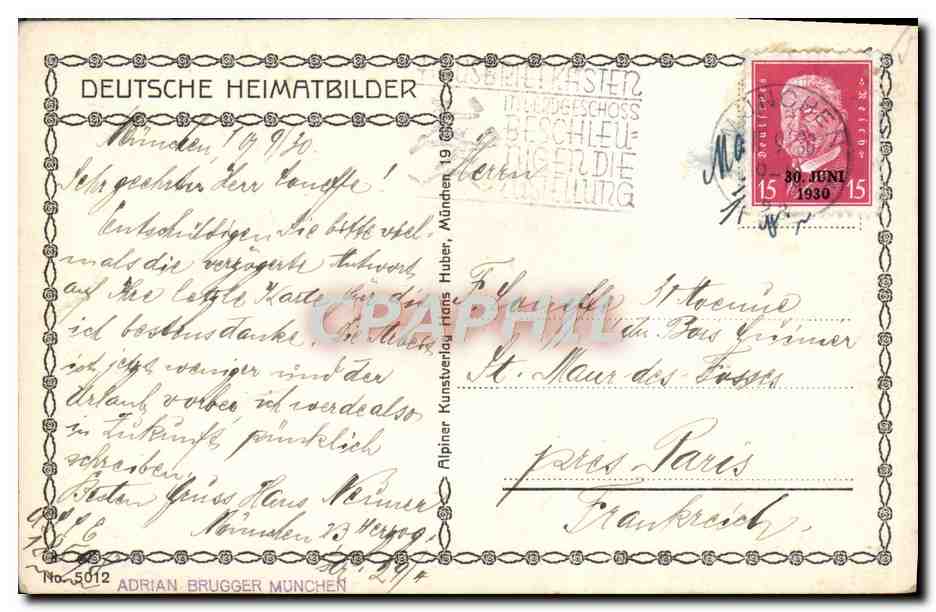 DEUTSCHE HEIMATBILDER
München, 10/9/30
Sehr geehrter Herr Loueffe!
Entschuldigen Sie bitte viel-
mals die verzögerte Antwort
auf Ihre letzte Karte für die
ich bestens danke. Die Arbeit
ist jetzt weniger und der
Urlaub vorbei, ich werde also
in Zukunft pünktlich
schreiben.
Besten Gruss Hans
München 23 Herzog
No. 5012
ADRIAN BRUGGER MÜNCHEN
Alpiner Kunstverlag Hans Huber, München 19
BRIEFKASTEN
IM ERDGESCHOSS
BESCHLEU=
NIGEN DIE
ZUSTELLUNG
MÜNCHEN
Deutsches Reich
30. JUNI
1930
15 15
Herrn
F. Loueffe 31 Avenue
du Bois
St. Maur des Fósses
près Paris
Frankreich
CPAPHIL